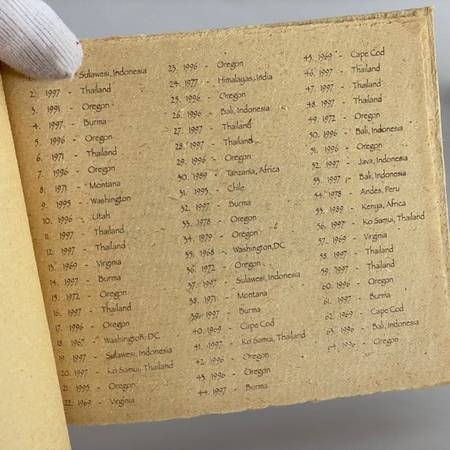 Sulawesi, Indonesia
2. 1997 - Thailand
3. 1991 - Oregon
4. 1997 - Burma
5. 1996 - Oregon
6. 1971 - Thailand
7. 1996 - Oregon
8. 1971 - Montana
9. 1995 - Washington
10. 1996 - Utah
11. 1997 - Thailand
12. 1997 - Thailand
13. 1969 - Virginia
14. 1997 - Burma
15. 1972 - Oregon
16. 1997 - Thailand
17. 1996 - Oregon
18. 1967 - Washington, DC
19. 1997 - Sulawesi, Indonesia
20. 1997 - Ko Samui, Thailand
21. 1995 - Oregon
22. 1969 - Virginia
23. 1996 - Oregon
24. 1977 - Himalayas, India
25. 1996 - Oregon
26. 1996 - Bali, Indonesia
27. 1997 - Thailand
28. 1997 - Thailand
29. 1996 - Oregon
30. 1989 - Tanzania, Africa
31. 1993 - Chile
32. 1997 - Burma
33. 1978 - Oregon
34. 1979 - Oregon
35. 1968 - Washington, DC
36. 1972 - Oregon
37. 1997 - Sulawesi, Indonesia
38. 1971 - Montana
39. 1997 - Burma
40. 1969 - Cape Cod
41. 1997 - Ko Samui, Thailand
42. 1996 - Oregon
43. 1996 - Oregon
44. 1997 - Burma
45. 1969 - Cape Cod
46. 1997 - Thailand
47. 1997 - Thailand
48. 1997 - Thailand
49. 1972 - Oregon
50. 1996 - Bali, Indonesia
51. 1996 - Oregon
52. 1997 - Java, Indonesia
53. 1997 - Bali, Indonesia
54. 1978 - Andes, Peru
55. 1989 - Kenya, Africa
56. 1997 - Ko Samui, Thailand
57. 1969 - Virginia
58. 1997 - Thailand
59. 1997 - Thailand
60. 1996 - Oregon
61. 1997 - Burma
62. 1969 - Cape Cod
63. 1996 - Bali, Indonesia
64. 1996 - Oregon